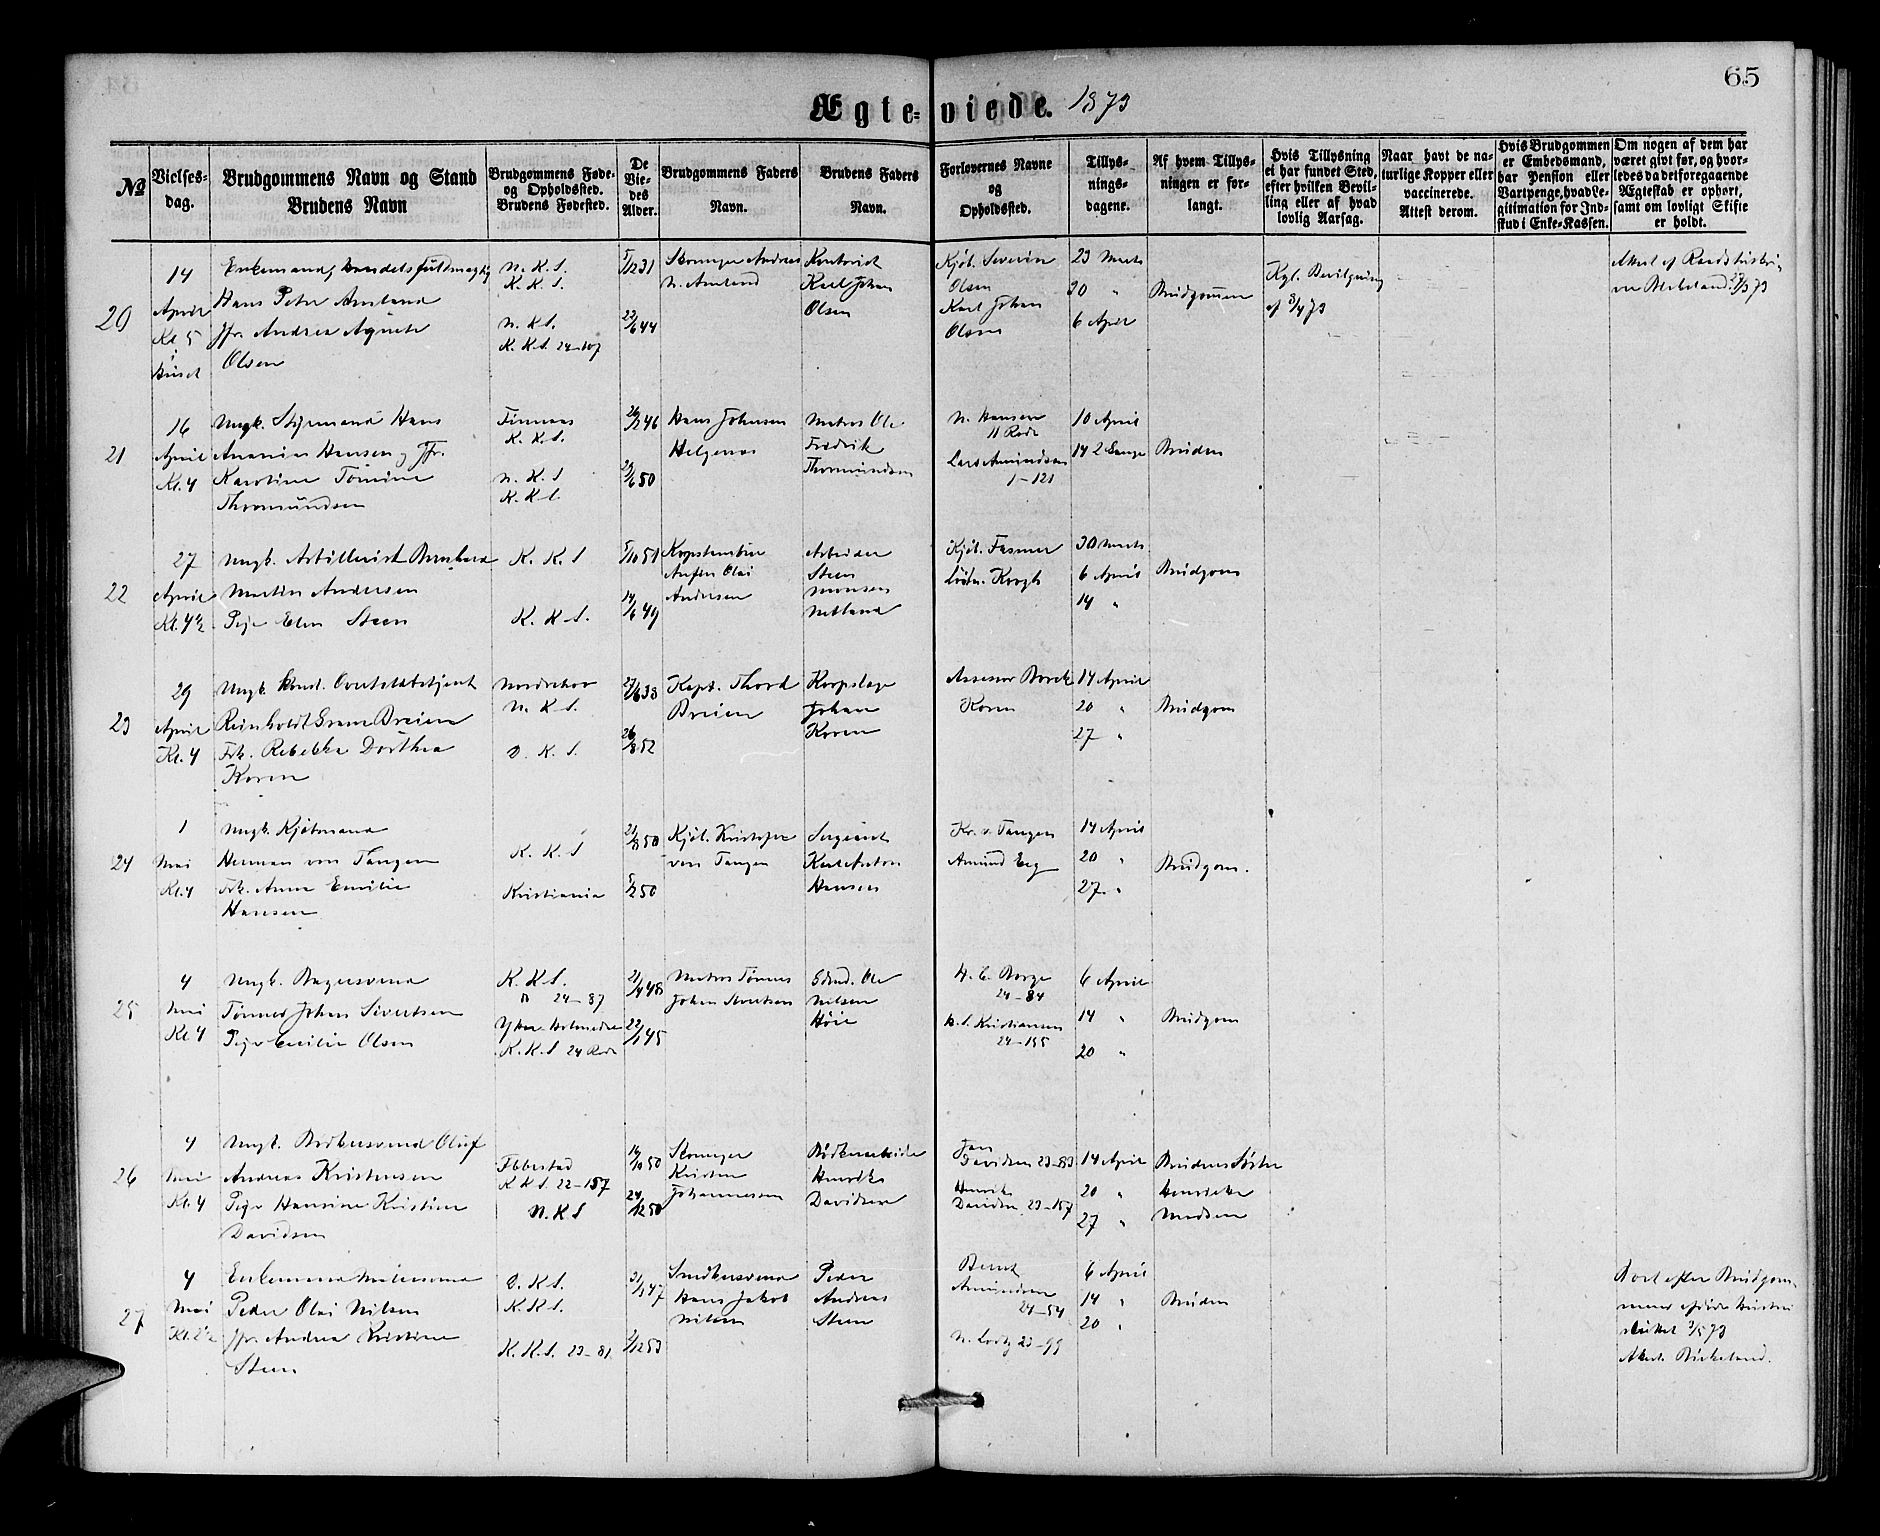 65
Ægteviede. 1873
No
Vielses-
dag.
Brudgommens Navn og Stand
Brudens Navn
Brudgommens Føde-
og Opholdssted.
Brudens Fødested.
De
Vie-
des
Alder.
Brudgommens Faders
Navn.
Brudens Faders
Navn.
Forlovernes Navne
og
Opholdssted.
Tillys-
nings-
dagene.
Af hvem Tillys-
ningen er for-
langt.
Hvis Tillysning
ei har fundet Sted,
efter hvilken Bevil-
ling eller af hvad
lovlig Aarsag.
Naar havt de na-
turlige Kopper eller
vaccinerede.
Attest derom.
Hvis Brudgommen
er Embedsmand,
har Pension eller
Vartpenge, hvad Le-
gitimation for Ind-
skud i Enke-Kassen.
Om nogen af dem har
været givt før, og hvor-
ledes da det foregaaende
Ægteskab er ophørt,
samt om lovligt Skifte
er holdt.
20
14
April
Kl. 5
Enkemand, Handelsfuldmægtig
Hans Peter Amland
Jfr. Andrea Agnete
Olsen
N. K. S.
K. K. S.
N. K. S.
K. K. S. 24-107
5/12 31
22/6 44
Andreas
N. Amland
Karl Johan
Olsen
Kjøb. Severin
Olsen
Karl Johan
Olsen
23 Marts
30 "
6 April
Brudgommen
Kgl. Bevilgning
af 3/4 73
21
16
April
Kl. 4
Ungk. Styrmand Hans
Ananias Hansen og Jfr.
Karoline Tomine
Thormundsen
K. K. S.
N. K. S
K. K. S.
26/2 46
29/6 50
Hans Johnsen
Helgenes
Matros Ole
Fredrik
Thormundsen
N. Hansen
11 Rode
Lars Amundsen
1-121
10 April
14 2 Gange
Bruden
22
27
April
Kl. 4½
Ungk. Artillerist Bernhard
Martin Andersen
Pige Elen Steen
K. K. S
K. K. S.
5/10 51
14/6 49
Andersen
Arbeider
Steen
Monsen
Netland
Kjøb. Fasmer
Krogh
30 Marts
6 April
14 "
Brudgom
23
29
April
Kl. 4
Ungk. Konst. Overtoldbetjent
Reinholdt Gram Breien
Frk. Rebekka Dorthea
Koren
Norderhov
N. K. S.
O. K. S.
27/6 38
26/8 52
Kapt. Thord
Breien
Korpslæge
Johan
Koren
Assessor Borch
Koren
14 April
20 "
27 "
Brudgom
24
1
Mai
Kl. 4
Ungk. Kjøbmand
Herman von Tangen
Frk. Anna Emilie
Hansen
K. K. S
Kristiania
21/8 50
5/2 50
Kjøb. Kristofer
von Tangen
Sergeant
Karl Anton
Hansen
Kr. v. Tangen
Amund Eeg
14 April
20 "
27 "
Brudgom.
25
4
Mai
Kl 4
Ungk. Bagersvend
Tønnes Johan Sivertsen
Pige Cecilie Olsen
K. K. S.
24-87
K. K. S 24 Rode
21/4 48
22/1 45
Matros Tønnes
Johan Sivertsen
Gbrd. Ole
Nilsen
Høie
H. C. Borge
24-84
Kristiansen
24-155
6 April
14 "
20 "
Brudgom
26
4
Mai
Kl. 4
Ungk. Bødkersvend Oluf
Andreas Kristensen
Pige Hansine Kristine
Davidsen
Ibbestad
K K S. 22-157
N. K S
14/10 50
24/12 50
Skomager
Kristen
Johannessen
Bødkerarbeider
Henrik
Davidsen
Jens
Davidsen 23-83
Henrik
Davidsen 23-157
14 April
20 "
27 "
Brudens Søster
Henriette
Madsen
27
4
Mai
Kl. 2½
Enkemand Malersvend
Peder Olai Nilsen
Jfr. Andrea Kristine
Steen
O. K S.
K K S.
K. K. S. 23-81
31/1 47
2/12 53
Smedsvend
Hans Jakob
Nilsen
Peder
Andreas
Steen
Bernt
Amundsen
24-54
N. Lortz 23-99
6 April
14 "
20 "
Bruden
Bort efter Brudgom-
mens afdøde Hustru
sluttet 3/5 73
Akest. Birkeland.